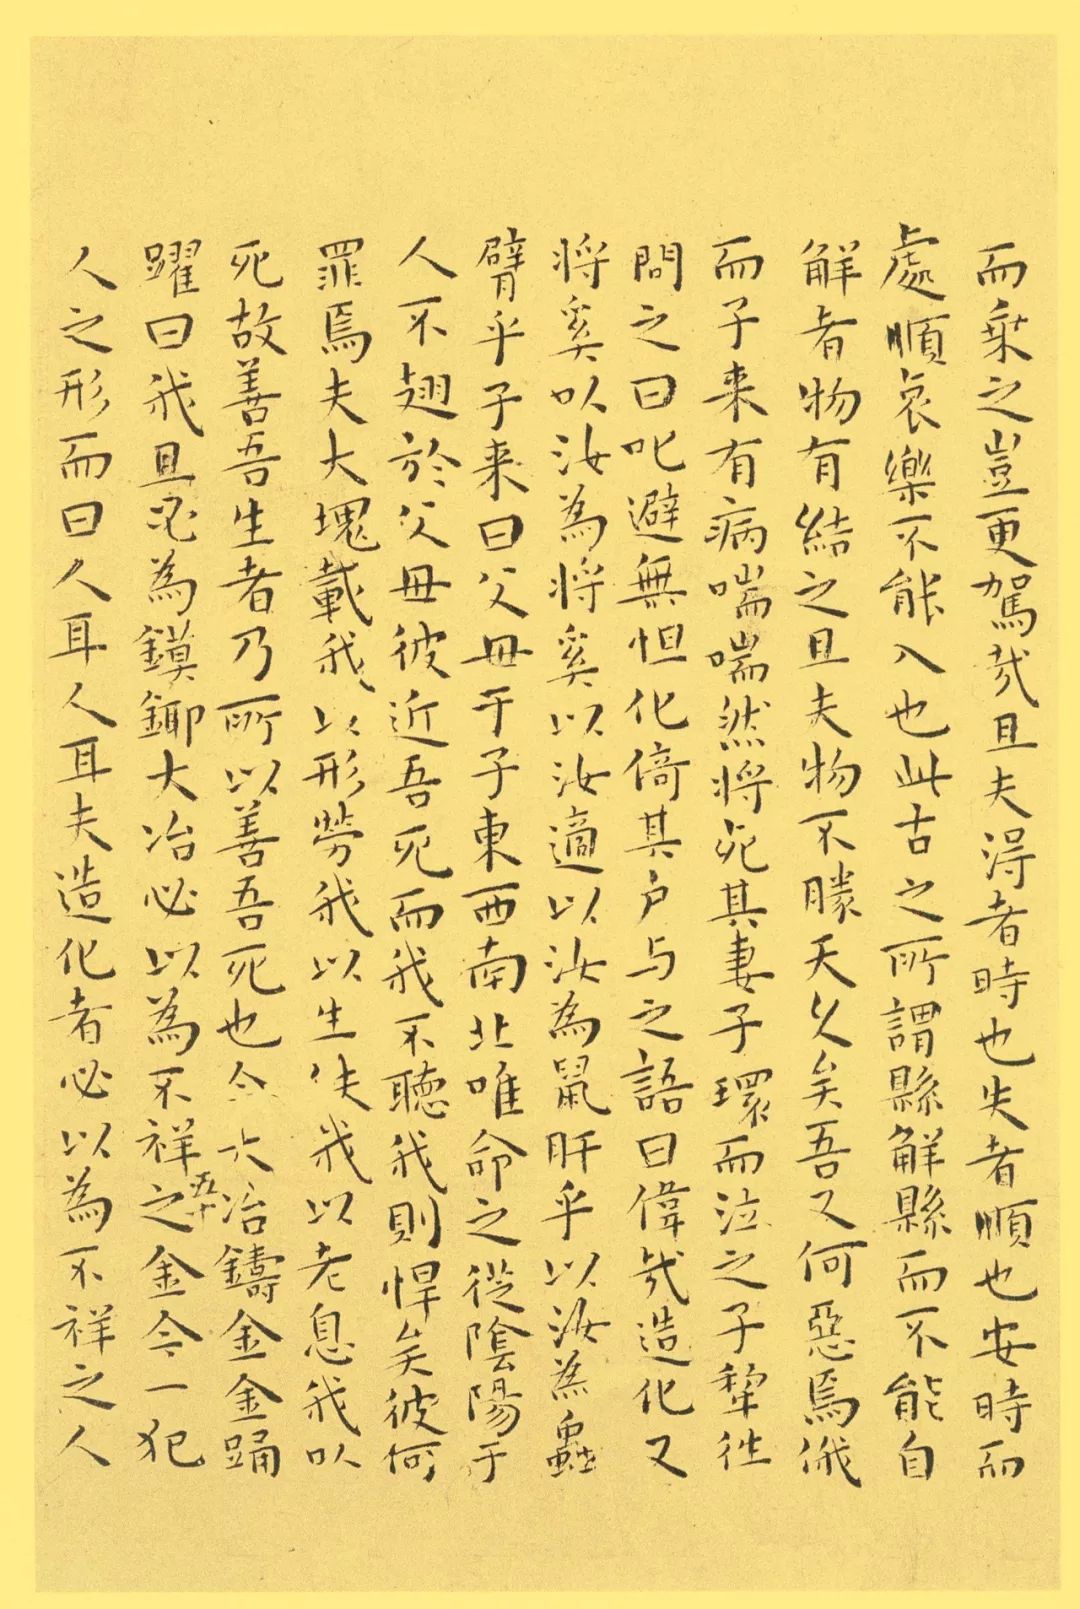 而乗之豈更駕哉且夫淂者時也失者順也安時而
處順哀樂不能入也此古之所謂縣解縣而不能自
解者物有結之且夫物不勝天久矣吾又何惡焉俄
而子来有病喘喘然将死其妻子環而泣之子犂往
問之曰叱避無怛化倚其户与之語曰偉哉造化又
将奚以汝為将奚以汝適以汝為鼠肝乎以汝為蟲
臂乎子来曰父毋于子東西南北唯命之従陰陽于
人不翅於父毋彼近吾死而我不聽我則悍矣彼何
罪焉夫大塊載我以形勞我以生佚我以老息我以
死故善吾生者乃所以善吾死也今大冶鑄金金踊
躍曰我且必為鏌鎁大冶必以為不祥之金今一犯
五十
人之形而曰人耳人耳夫造化者必以為不祥之人